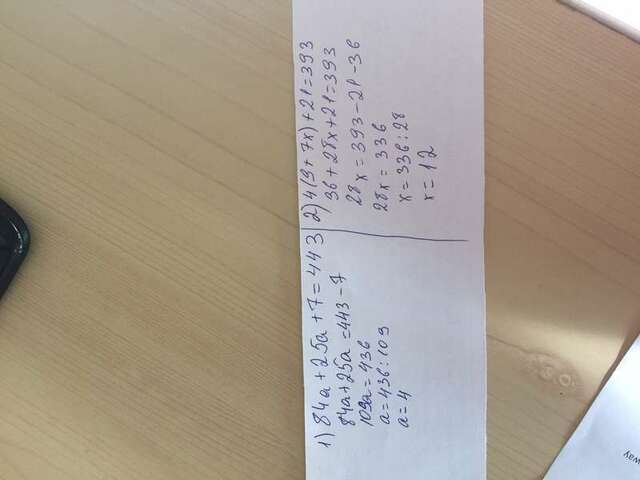 1) 84a + 25a + 7 = 443
84a + 25a = 443 - 7
109a = 436
a = 436 : 109
a = 4
2) 4(9 + 7x) + 21 = 393
36 + 28x + 21 = 393
28x = 393 - 21 - 36
28x = 336
x = 336 : 28
x = 12
way